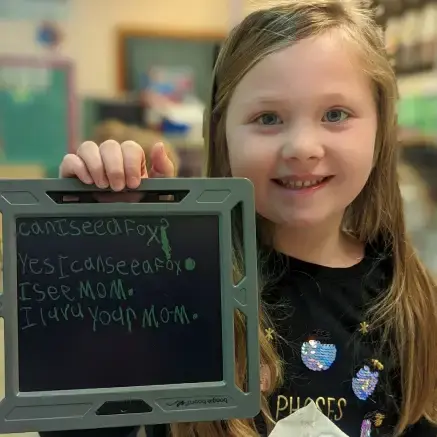 canIseeafox?
YesIcanseeafox.
Isee MOM.
I luvu your MOM.
PHASES